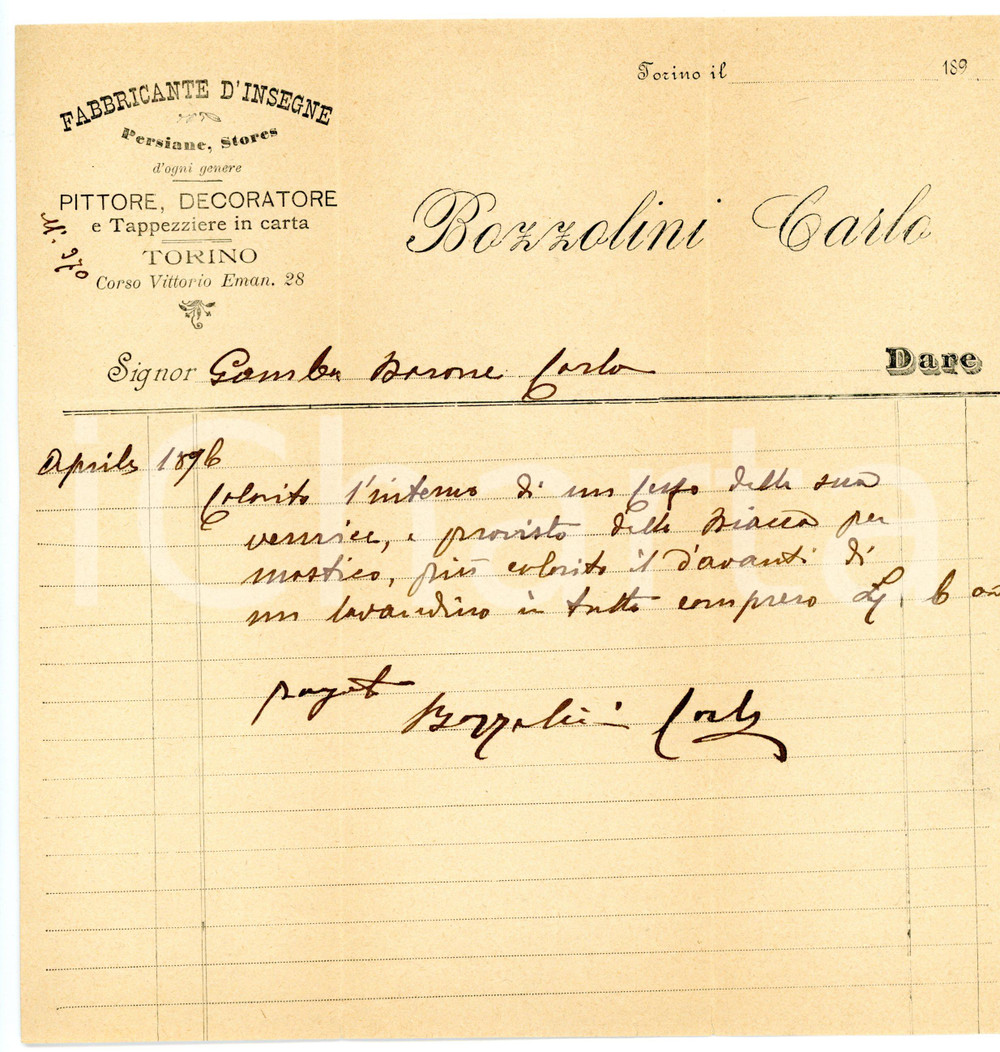 Torino il 189
FABBRICANTE D'INSEGNE
Persiane, Stores
d'ogni genere
PITTORE, DECORATORE
e Tappezziere in carta
TORINO
Corso Vittorio Eman. 28
N. 670
Bozzolini Carlo
Signor Gamba Barone Carlo Dare
Aprile 1896
Colorito l'interno di un della sua
vernice, e provisto della Biacca per
mastico, più colorito il d'avanti di
un lavandino in tutto compreso L. 6
pagato
Bozzolini Carlo
iCharta